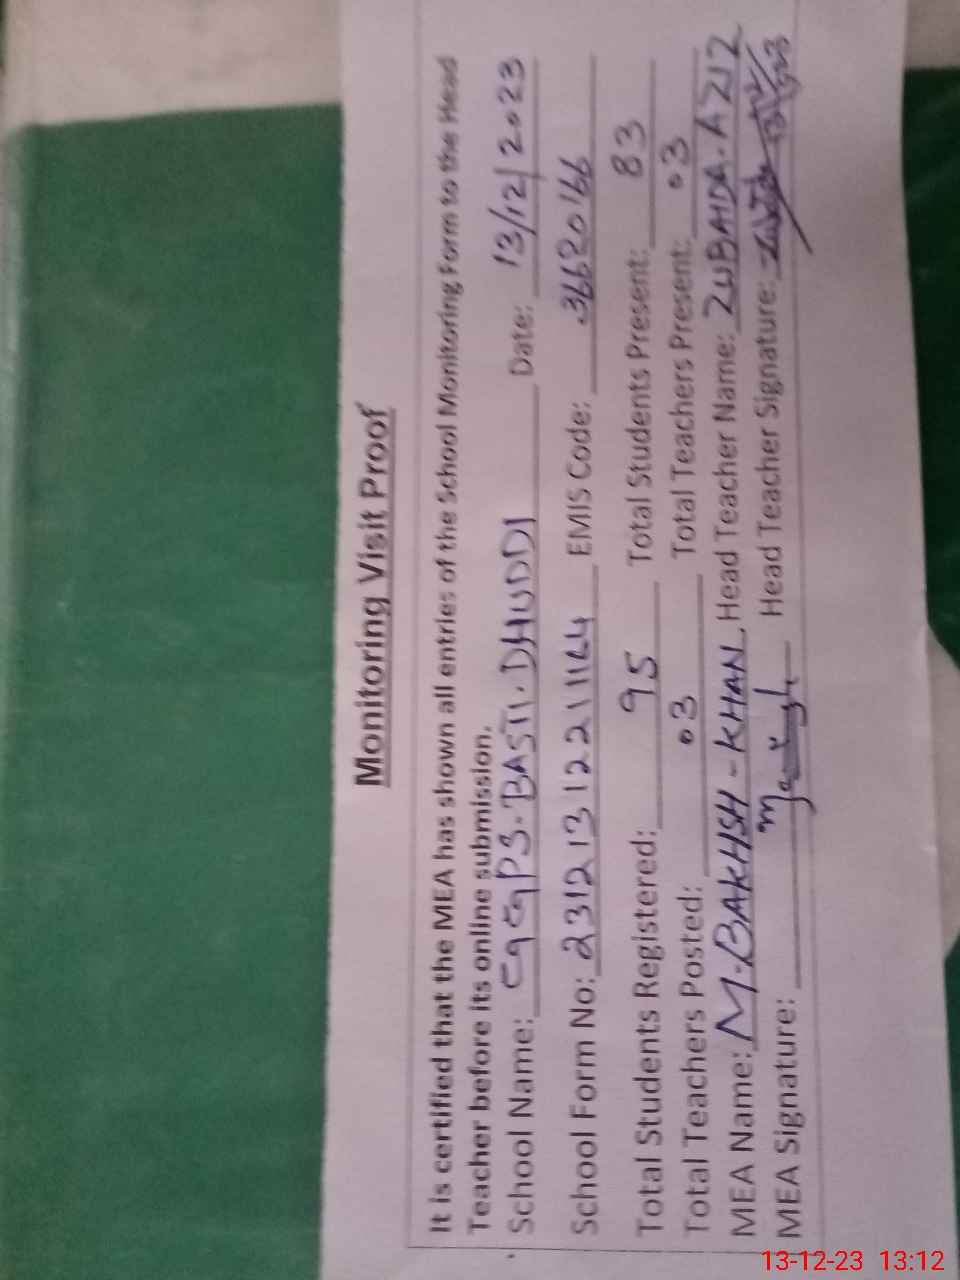 Monitoring Visit Proof
It is certified that the MEA has shown all entries of the School Monitoring Form to the Head
Teacher before its online submission.
School Name: GGPS-BASTI.DHUDDI Date: 13/12/2023
School Form No: 23121312211144 EMIS Code: 36620166
Total Students Registered: 95 Total Students Present: 83
Total Teachers Posted: 03 Total Teachers Present: 03
MEA Name: M.BAKHSH-KHAN Head Teacher Name: ZUBAIDA.AZIZ
MEA Signature: Head Teacher Signature:
13-12-23 13:12